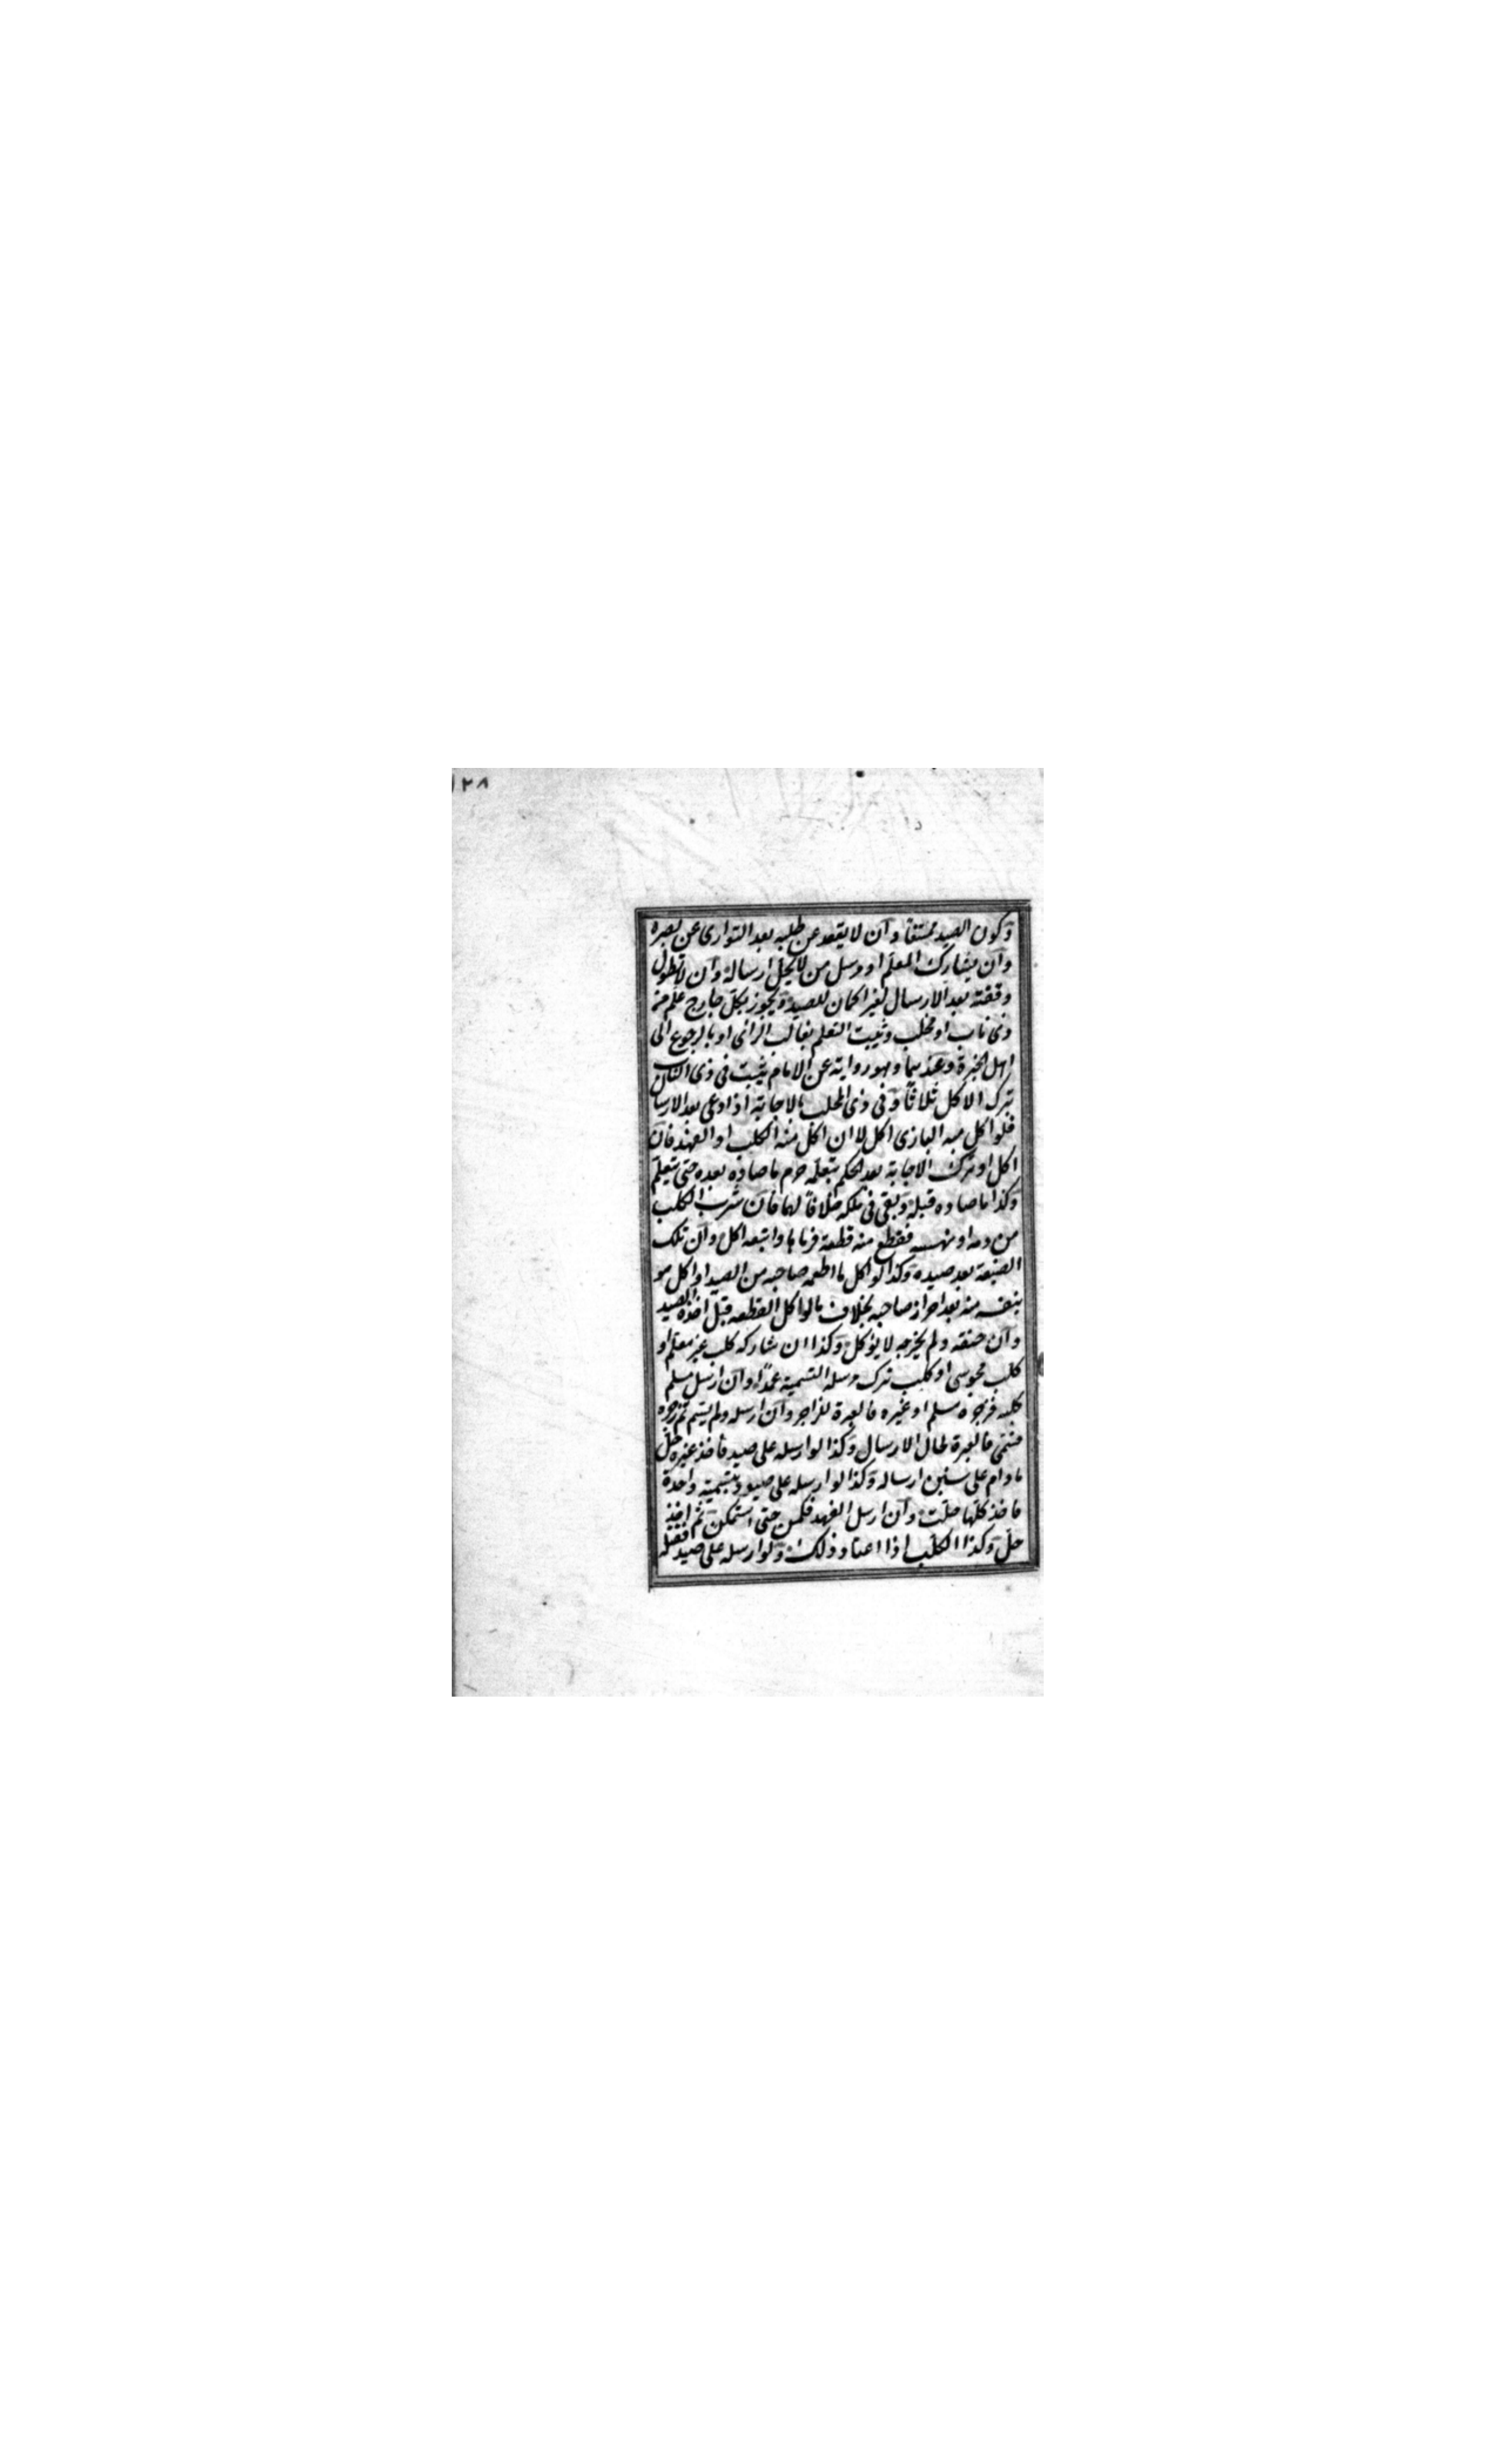 ١٢٨
وكون الصيد ممتنعا وآن لا يقعد عن طلبه بعد التوارى عن بصره
وآن يشارك المعلم او مرسل من لا يحل ارساله وآن لا تطول
وقفته بعد الارسال لغير اكمان للصيد ويجوز بكل جارح علم من
ذى ناب او مخلب وثبيت التعلم بغالب الرائى او بالرجوع الى
اهل الخبرة وعندهما وهو رواية عن الامام يثبت فى ذى الناب
بترك الاكل ثلاثا وفى ذى المخلب بالاجابة اذا دعى بعد الارسال
فلو اكل منه البازى اكل لا ان اكل منه الكلب او الفهد فان
اكل او ترك الاجابة بعد الحكم بتعلمه حرم ما صاده بعده حتى يتعلم
وكذا ما صاده قبله وبقى فى ملكه خلافا لهما فان شرب الكلب
من دمه او نهسه فقطع منه قطعة فرماها واتبعه اكل وآن تلك
الصنعة بعد صيده وكذا لو اكل ما اطعمه صاحبه من الصيد او اكل هو
بنفسه منه بعد احراز صاحبه بخلاف ما لو اكل القطعة قبل اخذه الصيد
وآن خنقه ولم يجرحه لا يؤكل وكذا ان شاركه كلب غير معلم او
كلب مجوسى او كلب ترك مرسله التسمية عمدا وآن ارسل مسلم
كلبه فزجره مسلم او غيره فالعبرة للزاجر وآن ارسله ولم يسم ثم زجره
فسمى فالعبرة لحال الارسال وكذا لو ارسله على صيد فاخذ غيره حل
ما دام على سنن ارساله وكذا لو ارسله على صيود بتسمية واحدة
فاخذ كلها حلت وآن ارسل الفهد فكمن حتى استمكن ثم اخذ
حل وكذا الكلب اذا اعتاد ذلك ولو ارسله على صيد فقتله